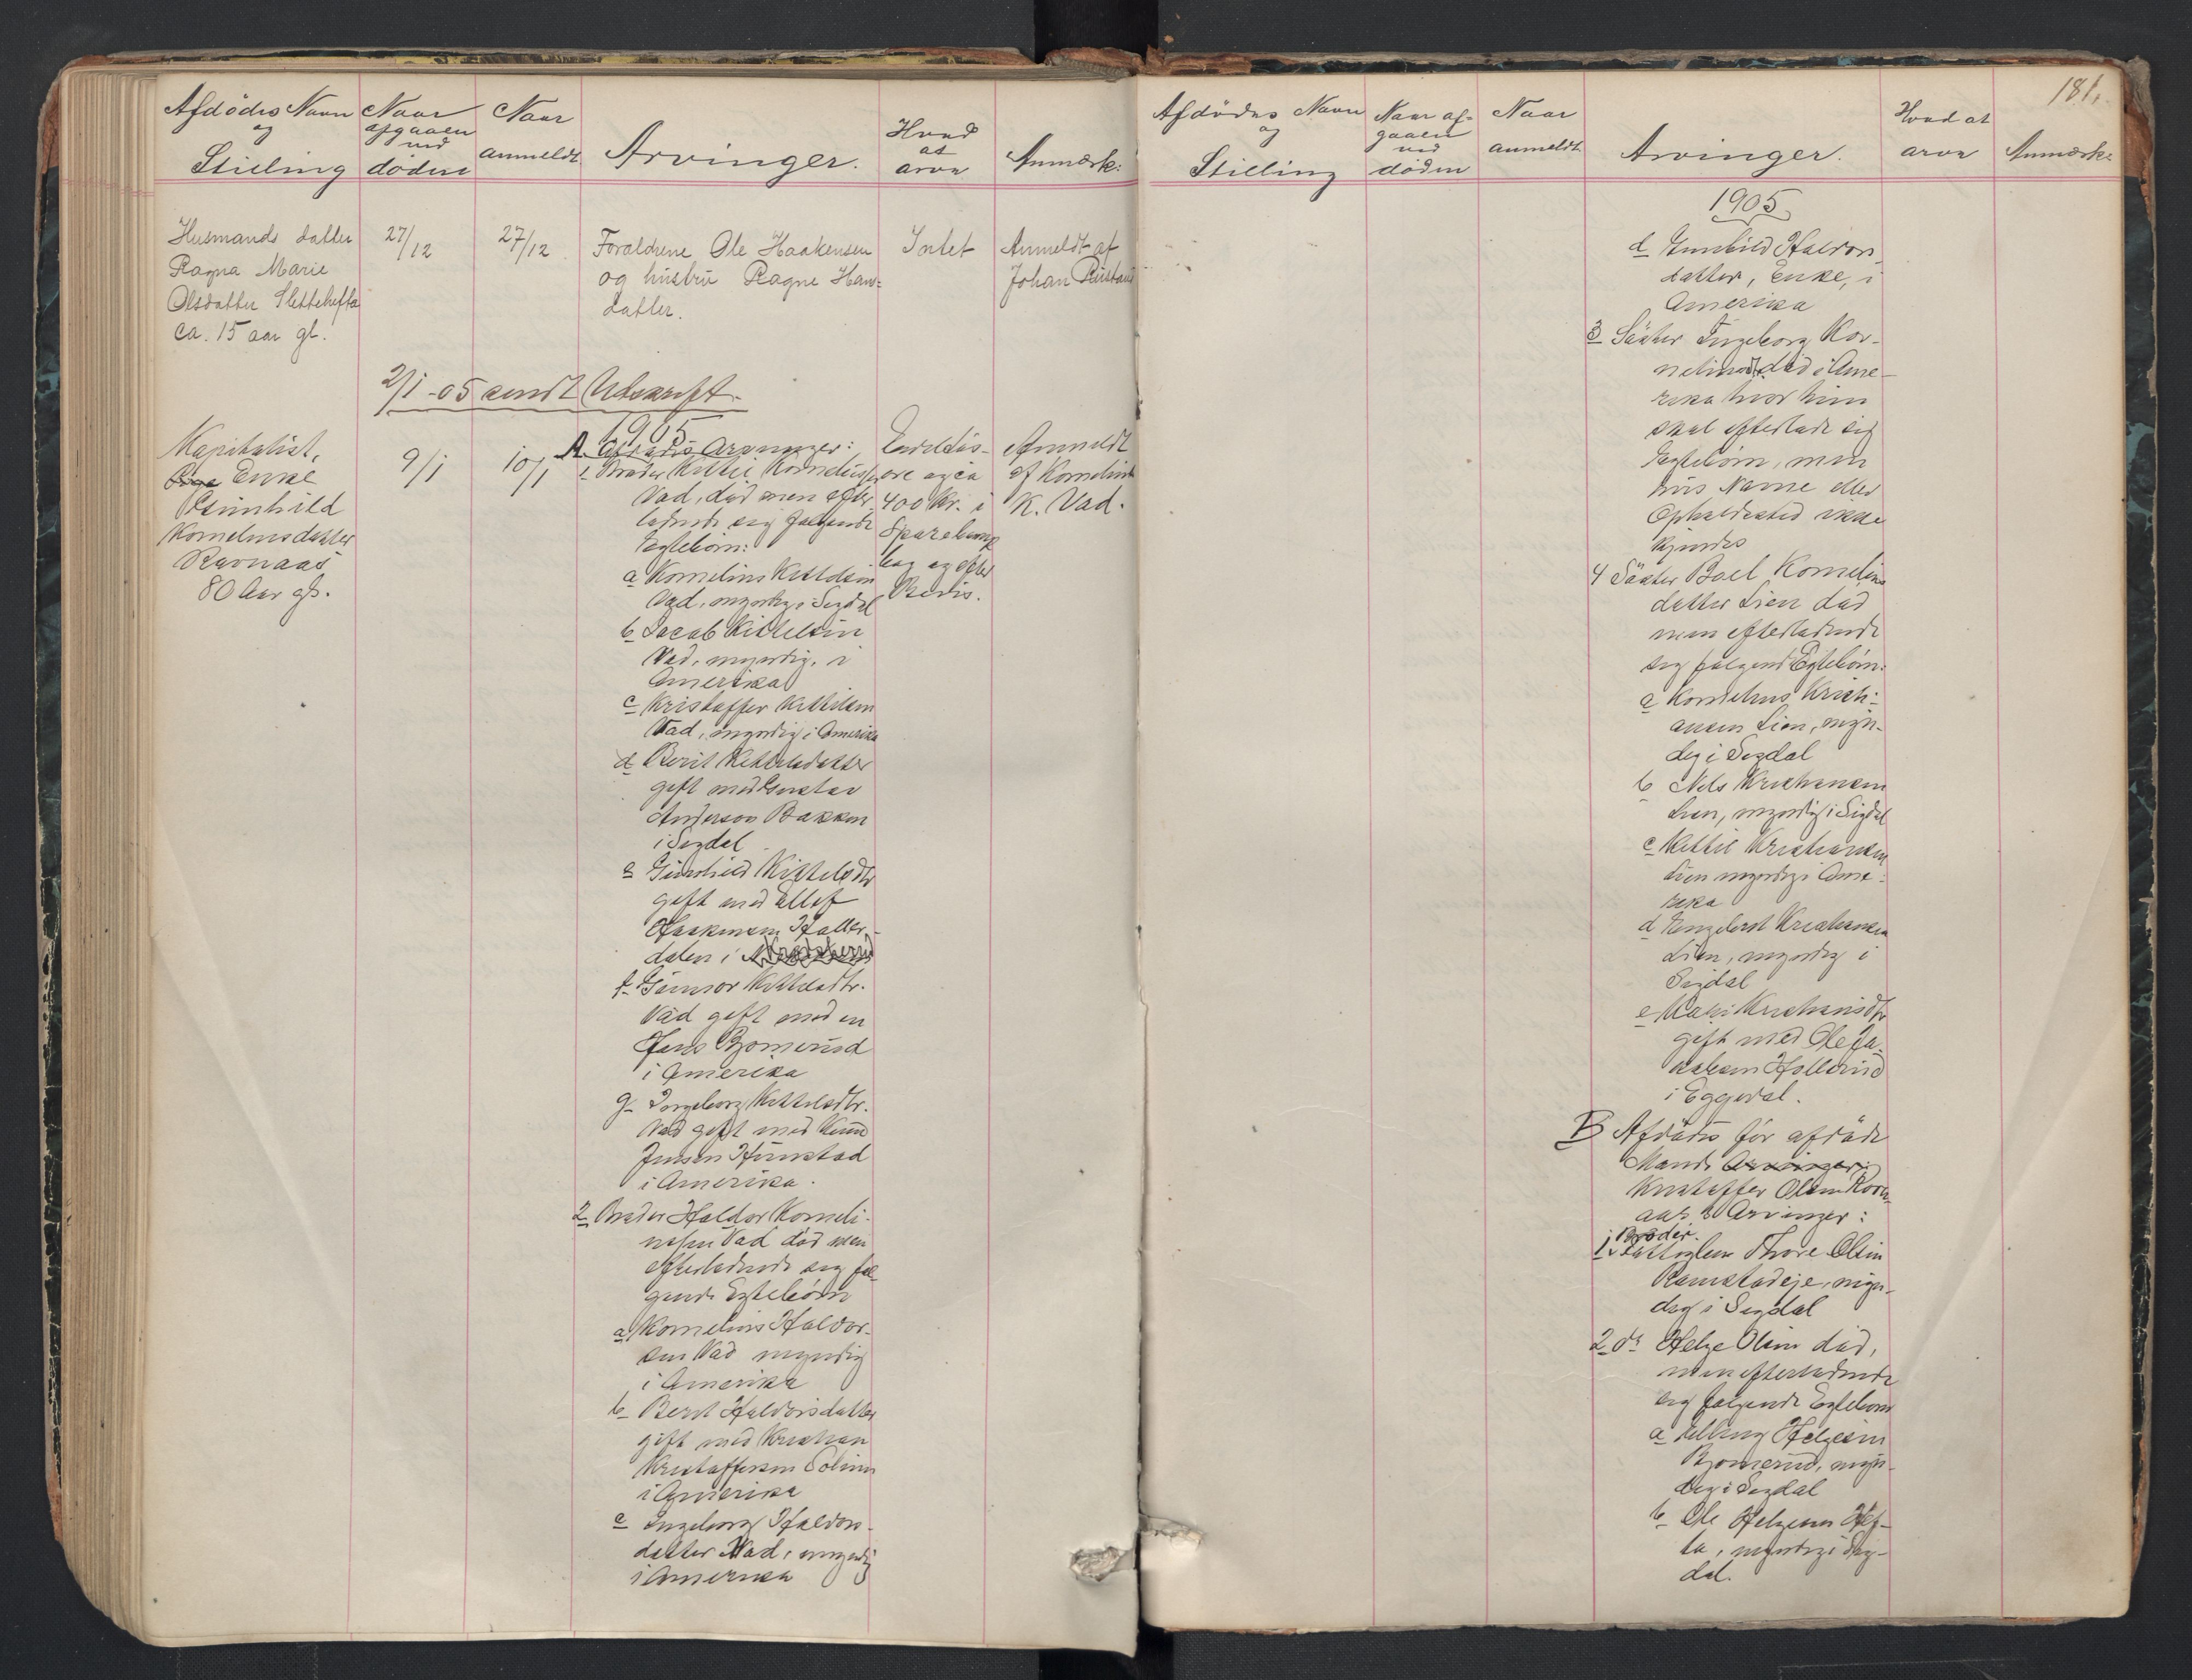 Afdödes Navn
og
Stilling
Naar
afgaaen
ved
döden
Naar
anmeldt
Arvinger.
Hvad
at
arve
Anmærk:
Husmands datter
Ragna Marie
Olsdatter Slettehefta
ca. 15 aar gl.
27/12
27/12
Forældrene Ole Haakensen
og hustru Ragne Hans-
datter.
Intet
Anmeldt af
Johan
2/1 -05 sendt Udskrift.
1905
Kapitalist,
Enke
Gunhild
Kornelius datter
Ravnaas
80 Aar gl.
9/1
10/1
A. Afdødes Arvinger:
1 Broder Kittil Korneliussen
Vad, död men efter-
ladende sig følgende
Egtebörn:
a Kornelius Kittelsen
Vad, myndig i Sigdal
b Jacob Kittelsen
Vad, myndig, i
Amerika
c Kristoffer Kittilsen
Vad, myndig i Amerika
d Berit Kittelsdatter
gift med Gustav
Anderson Bakken
i Sigdal
e Gunhild Kittelsdtr
gift med Ellef
Haakensen Haller-
dalen i
f Gunvor Kittelsdtr.
Vad gift med en
Hans Bjomerud
i Amerika
g Ingeborg Kittelsdtr.
Vad gift med Knud
Jensen Hunstad
i Amerika.
2 Broder Haldor Korneli-
ussen Vad död men
efterladende sig føl-
gende Egtebörn
a Kornelius Haldor-
sen Vad myndig
i Amerika
b Berit Haldorsdatter
gift med Kristian
Kristoffersen Solum
i Amerika
c Ingeborg Haldors-
datter Vad, myndig
i Amerika
Lösöre og ca
400 Kr. i
Sparebank
bog og efter
Bevis.
Anmeldt
af Kornelius
K. Vad.
181.
Afdödes Navn
og
Stilling
Naar af-
gaaen
ved
döden
Naar
anmeldt
Arvinger.
Hvad at
arve
Anmærk:
1905
d Gunhild Haldors-
datter, Enke, i
Amerika
3 Søster Ingeborg Kor-
neliusdtr. død i Ame-
rika hvor hun
skal efterlade sig
Egtebörn, men
hvis Navne eller
Opholdssted ikke
kjendes
4 Søster Boel Kornelius
datter Lien død
men efterladende
sig følgende Egtebörn:
a Kornelius Kristi-
ansen Lien, myn-
dig i Sigdal
b Nels Kristiansen
Lien, myndig i Sigdal
c Kittil Kristiansen
Lien myndig i Ame-
rika
d Engebret Kristiansen
Lien, myndig i
Sigdal
e Mari Kristiansdtr
gift med Ole Ja-
kobsen Hollerud
i Eggedal.
B Afdødes før afdøde
Mands Arvinger:
Kristoffer Olsen Ravn-
aas's Arvinger:
1 Broder.
Thore Olsen
Ramstadeje, myn-
dig i Sigdal
2 do Helge Olsen død,
men efterladende
sig følgende Egtebörn
a Elling Helgesen
Bjomerud, myn-
dig i Sigdal
b Ole Helgesen Hef-
ta, myndig i Sig-
dal.